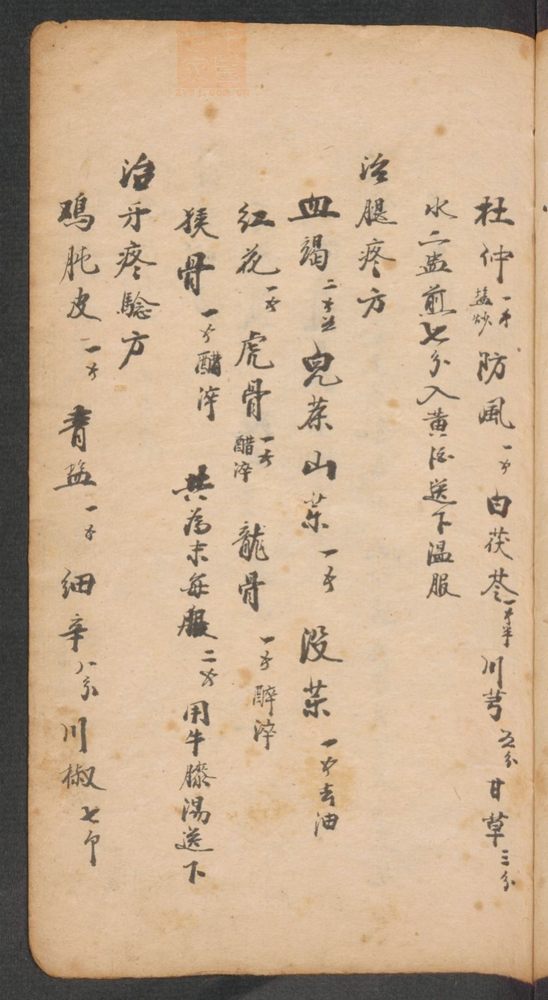 杜仲一钱盐炒 防風一钱 白茯苓一钱半 川芎五分 甘草三分
水二盅煎七分入黄酒送下温服
治腿疼方
血竭二钱 兒茶山茶一钱 没茶一钱去油
红花一钱 虎骨一钱醋淬 龍骨一钱醉淬
猴骨一钱醋淬 共為末每服二钱用牛膝湯送下
治牙疼驗方
鸡肫皮一钱 青盐一钱 细辛八分 川椒七